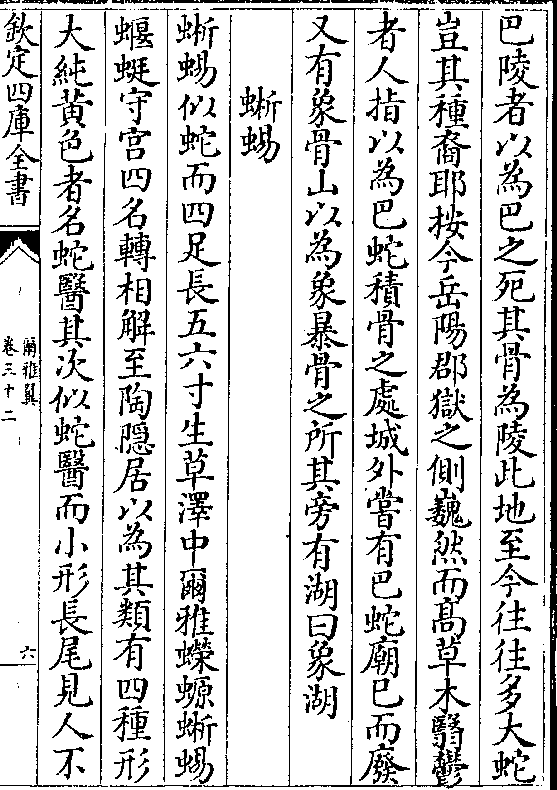 巴陵者以為巴之死其骨為陵此地至今往往多大蛇
豈其種裔耶按今岳陽郡獄之側巍然而髙草木翳鬱
者人指以為巴蛇積骨之處城外嘗有巴蛇廟已而廢
又有象骨山以為象暴骨之所其旁有湖曰象湖
蜥蜴
蜥蜴似蛇而四足長五六寸生草澤中爾雅蠑螈蜥蜴
蝘蜓守宫四名轉相解至陶隠居以為其類有四種形
大純黄色者名蛇醫其次似蛇醫而小形長尾見人不
欽定四庫全書
爾雅翼
卷三十二
六